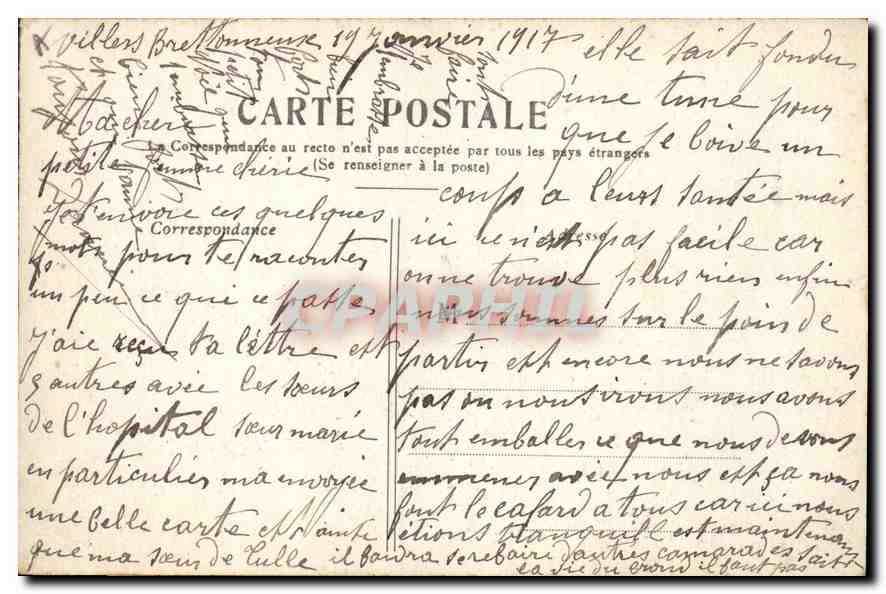 Villers Brettonneux 19 Janvier 1917
CARTE POSTALE
La Correspondance au recto n'est pas acceptée par tous les pays étrangers
(Se renseigner à la poste)
Correspondance
Adresse
Ma chère
petite femme chérie
Je t'envoie ces quelques
mots pour te raconter
un peu ce qui ce passe
j'aie reçus ta lèttre est
5 autres avée les sœurs
de l'hopital sœur marie
en particulier ma envoyée
une belle carte est ainsi
que ma sœur de Tulle il faudra se refaire d'autres camarades sait
la vie du front il faut pas
elle sait fondu
d'une tune pour
que je boive un
coup a leurs santée mais
ici ce n'est pas facile car
on ne trouve plus rien enfin
nous sommes sur le poin de
partir est encore nous ne savons
pas ou nous irons nous avons
tout emballer ce que nous devons
emmener avée nous est ça nous
fout le cafard a tous car ici nous
étions tranquill est maintenant
CPAPHIL